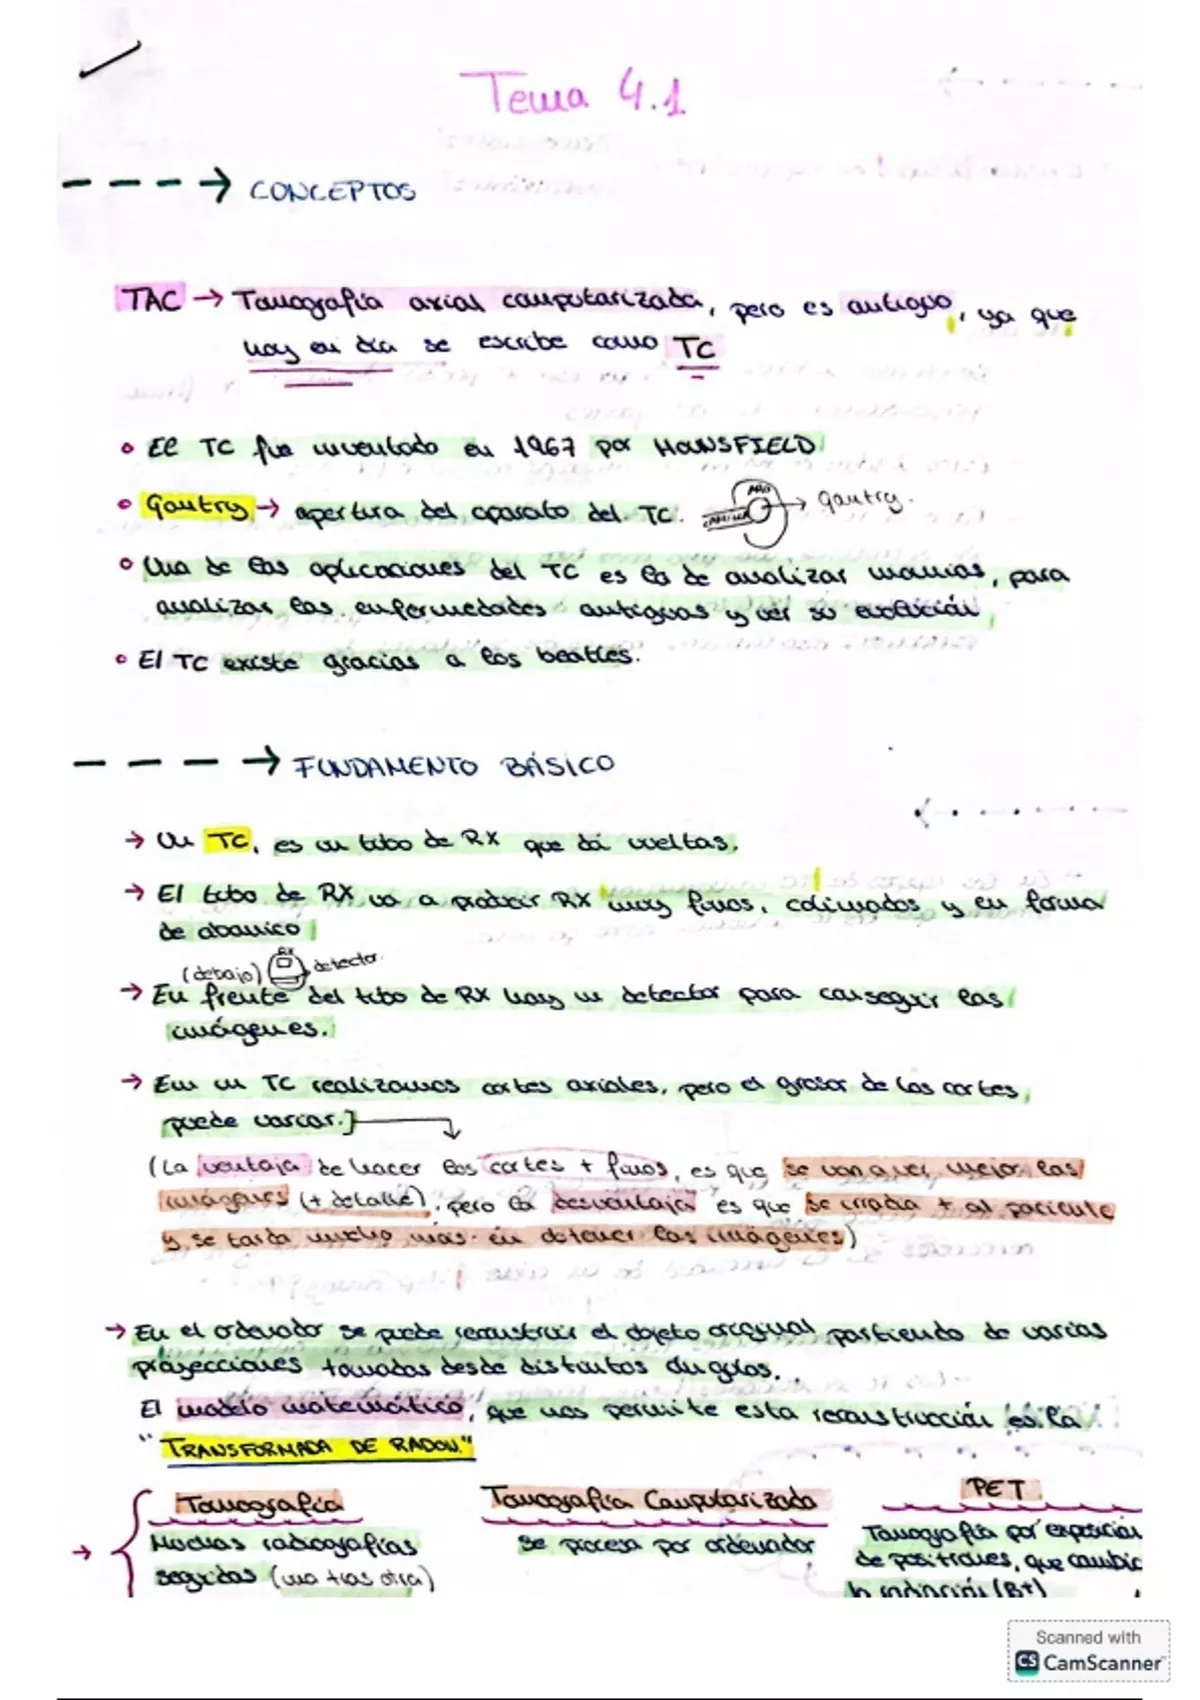 Tema 4.1
CONCEPTOS
TAC → Tomografía axial computarizada, pero es antiguo, ya que
hoy en día se escribe como TC
El TC fue inventado en 1967 por HOUNSFIELD
Gantry → apertura del aparato del TC. ARO CAMILLA → gantry.
Una de las aplicaciones del TC es la de analizar momias, para
analizar las enfermedades antiguas y ver su evolución
El TC existe gracias a los beatles.
FUNDAMENTO BÁSICO
→ Un TC, es un tubo de RX que dá vueltas.
→ El tubo de RX va a producir RX muy finos, colimados y en forma
de abanico
(debajo) RX detector.
→ En frente del tubo de RX hay un detector para conseguir las
imágenes.
→ En un TC realizamos cortes axiales, pero el grosor de los cortes,
puede variar.]
(La ventaja de hacer los cortes + finos, es que se van a ver mejor las
imágenes (+ detalle), pero la desventaja es que se irradia + al paciente
y se tarda mucho más en obtener las imágenes)
→ En el ordenador se puede reconstruir el objeto original partiendo de varias
proyecciones tomadas desde distintos ángulos.
El modelo matemático, que nos permite esta reconstrucción es la
"TRANSFORMADA DE RADON."
Tomografía
Muchas radiografías
seguidas (una tras otra)
Tomografía Computarizada
Se procesa por ordenador
PET
Tomografía por exposición
de positrones, que cambic
la radiación (B+)
Scanned with
CS CamScanner